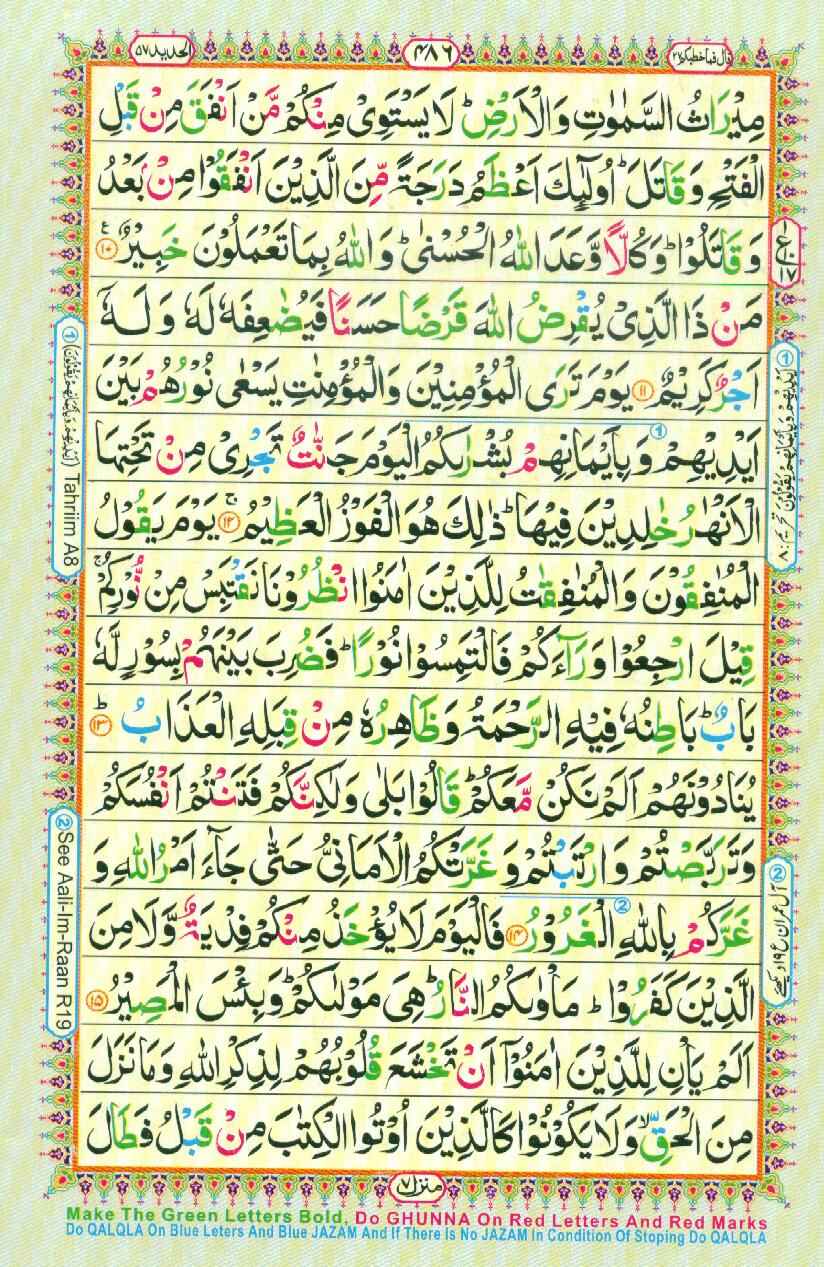 قال فما خطبكم ٢٧
٤٨٦
الحديد ٥٧
مِيْرَاثُ السَّمٰوٰتِ وَالْاَرْضِ ؕ لَا يَسْتَوِىْ مِنْكُمْ مَّنْ اَنْفَقَ مِنْ قَبْلِ
الْفَتْحِ وَقَاتَلَ ؕ اُولٰٓئِكَ اَعْظَمُ دَرَجَةً مِّنَ الَّذِيْنَ اَنْفَقُوْا مِنْۢ بَعْدُ
وَقَاتَلُوْا ؕ وَكُلًّا وَّعَدَ اللّٰهُ الْحُسْنٰى ؕ وَاللّٰهُ بِمَا تَعْمَلُوْنَ خَبِيْرٌ ۧ ﴿۱۰﴾
مَنْ ذَا الَّذِىْ يُقْرِضُ اللّٰهَ قَرْضًا حَسَنًا فَيُضٰعِفَهٗ لَهٗ وَلَهٗۤ
اَجْرٌ كَرِيْمٌ ﴿۱۱﴾ يَوْمَ تَرَى الْمُؤْمِنِيْنَ وَالْمُؤْمِنٰتِ يَسْعٰى نُوْرُهُمْ بَيْنَ
اَيْدِيْهِمْ وَبِاَيْمَانِهِمْ ① بُشْرٰىكُمُ الْيَوْمَ جَنّٰتٌ تَجْرِىْ مِنْ تَحْتِهَا
الْاَنْهٰرُ خٰلِدِيْنَ فِيْهَا ؕ ذٰلِكَ هُوَ الْفَوْزُ الْعَظِيْمُ ۚ ﴿۱۲﴾ يَوْمَ يَقُوْلُ
الْمُنٰفِقُوْنَ وَالْمُنٰفِقٰتُ لِلَّذِيْنَ اٰمَنُوا انْظُرُوْنَا نَقْتَبِسْ مِنْ نُّوْرِكُمْ ۚ
قِيْلَ ارْجِعُوْا وَرَآءَكُمْ فَالْتَمِسُوْا نُوْرًا ؕ فَضُرِبَ بَيْنَهُمْ بِسُوْرٍ لَّهٗ
بَابٌ ؕ بَاطِنُهٗ فِيْهِ الرَّحْمَةُ وَظَاهِرُهٗ مِنْ قِبَلِهِ الْعَذَابُ ؕ ﴿۱۳﴾
يُنَادُوْنَهُمْ اَلَمْ نَكُنْ مَّعَكُمْ ؕ قَالُوْا بَلٰى وَلٰكِنَّكُمْ فَتَنْتُمْ اَنْفُسَكُمْ
وَتَرَبَّصْتُمْ وَارْتَبْتُمْ وَغَرَّتْكُمُ الْاَمَانِىُّ حَتّٰى جَآءَ اَمْرُ اللّٰهِ وَ
غَرَّكُمْ بِاللّٰهِ الْغَرُوْرُ ② ﴿۱۴﴾ فَالْيَوْمَ لَا يُؤْخَذُ مِنْكُمْ فِدْيَةٌ وَّلَا مِنَ
الَّذِيْنَ كَفَرُوْا ؕ مَاْوٰىكُمُ النَّارُ ؕ هِىَ مَوْلٰىكُمْ ؕ وَبِئْسَ الْمَصِيْرُ ﴿۱۵﴾
اَلَمْ يَاْنِ لِلَّذِيْنَ اٰمَنُوْۤا اَنْ تَخْشَعَ قُلُوْبُهُمْ لِذِكْرِ اللّٰهِ وَمَا نَزَلَ
مِنَ الْحَقِّ ۙ وَلَا يَكُوْنُوْا كَالَّذِيْنَ اُوْتُوا الْكِتٰبَ مِنْ قَبْلُ فَطَالَ
ع ١٧
① ايديهم وبايمانهم يقولون تحريم: ٨
② آل عمران ع ١٩
① (ايديهم وبايمانهم يقولون) Tahriim A8
② See Aali-Im-Raan R19
منزل ٧
Make The Green Letters Bold, Do GHUNNA On Red Letters And Red Marks
Do QALQLA On Blue Leters And Blue JAZAM And If There Is No JAZAM In Condition Of Stoping Do QALQLA